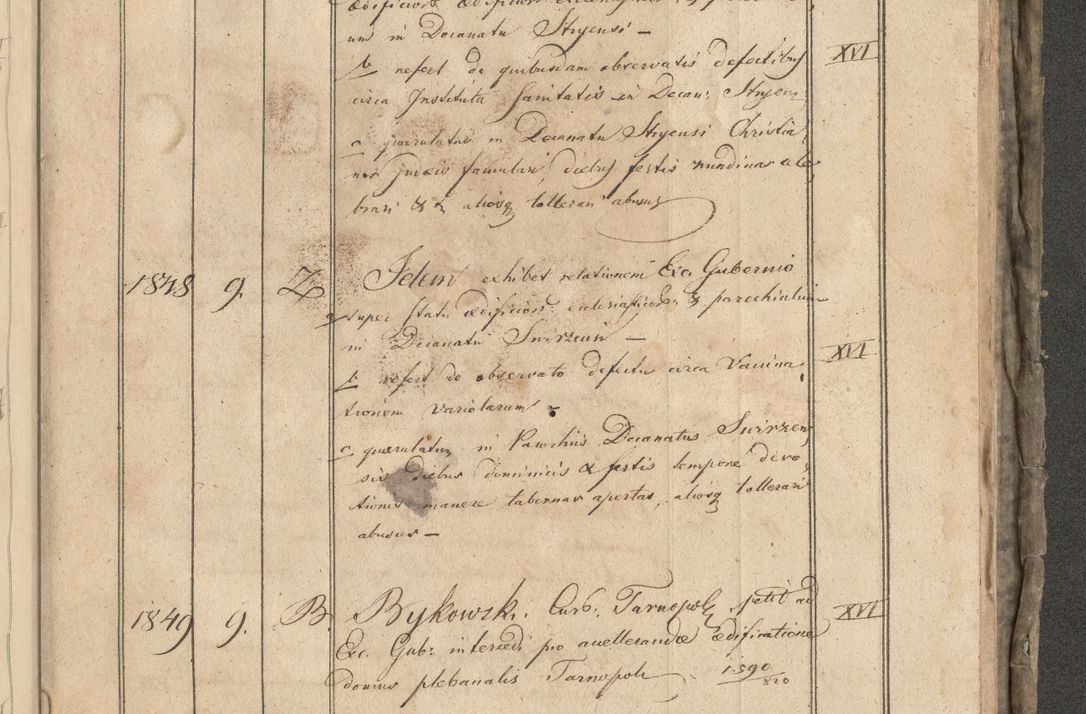 um in Decanatu Stryensi —
b refert de quibusdam observatis defectibus XVI
circa Instituta sanitatis in Decan: Stryen
c quærulatur in Decanatu Stryensi Christia
nos Judæis famulari, diebus festis nundinas cele
brari & aliosq tollerari abusus
1848 9. Z Idem exhibet relationem Exc. Gubernio
a super statu ædificior: ecclesiasticor: & parochialium
in Decanatu Swirzensi —
b refert de observato defectu circa Vaccina XVI
tionem variolarum -
c quærulatur in Parochiis Decanatus Swirzen
sis diebus dominicis & festis tempore devo
tionis manere tabernas apertas, aliosq tollerari
abusus —
1849 9. B. Bykowski Curb. Tarnopol petit ad XVI
Exc. Gub: intercedi pro acceleranda ædificatione
domus plebanalis Tarnopoli 1590